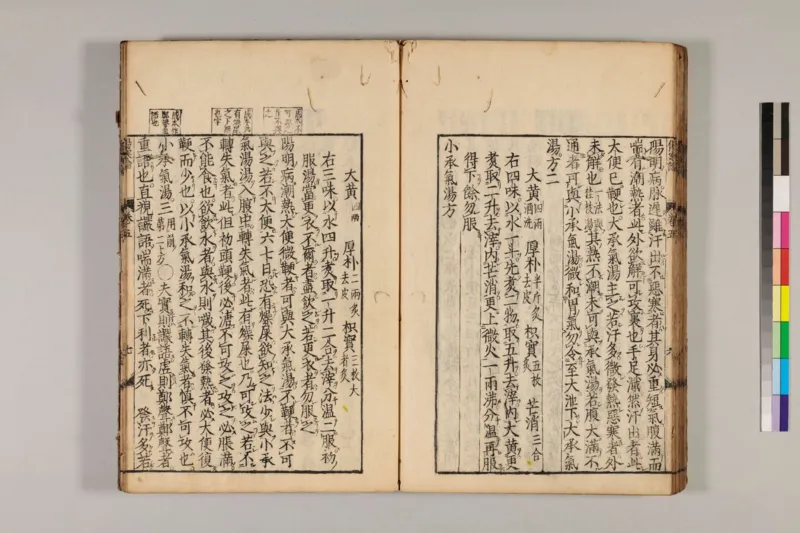 陽明病脉遲雖汗出不惡寒者其身必重短氣腹滿而
喘有潮熱者此外欲解可攻裏也手足濈然汗出者此
大便已鞕也大承氣湯主之若汗多微發熱惡寒者外
未解也其熱不潮未可與承氣湯若腹大滿不
通者可與小承氣湯微和胃氣勿令至大泄下大承氣
湯方二
大黃四兩酒洗 厚朴半斤炙去皮 枳實五枚炙 芒消三合
右四味以水一斗先煑二物取五升去滓內大黃更
煑取二升去滓內芒消更上微火一兩沸分溫再服
得下餘勿服
小承氣湯方
大黃四兩 厚朴二兩炙去皮 枳實三枚大者炙
右三味以水四升煑取一升二合去滓分溫二服初
服湯當更衣不爾者盡飲之若更衣者勿服之
陽明病潮熱大便微鞕者可與大承氣湯不鞕者不可
與之若不大便六七日恐有燥屎欲知之法少與小承
氣湯湯入腹中轉失氣者此有燥屎也乃可攻之若不
轉失氣者此但初頭鞕後必溏不可攻之攻之必脹滿
不能食也欲飲水者與水則噦其後發熱者必大便復
鞕而少也以小承氣湯和之不轉失氣者慎不可攻也
小承氣湯三用前第二方○夫實則讝語虛則鄭聲鄭聲者
重語也直視讝語喘滿者死下利者亦死 發汗多若